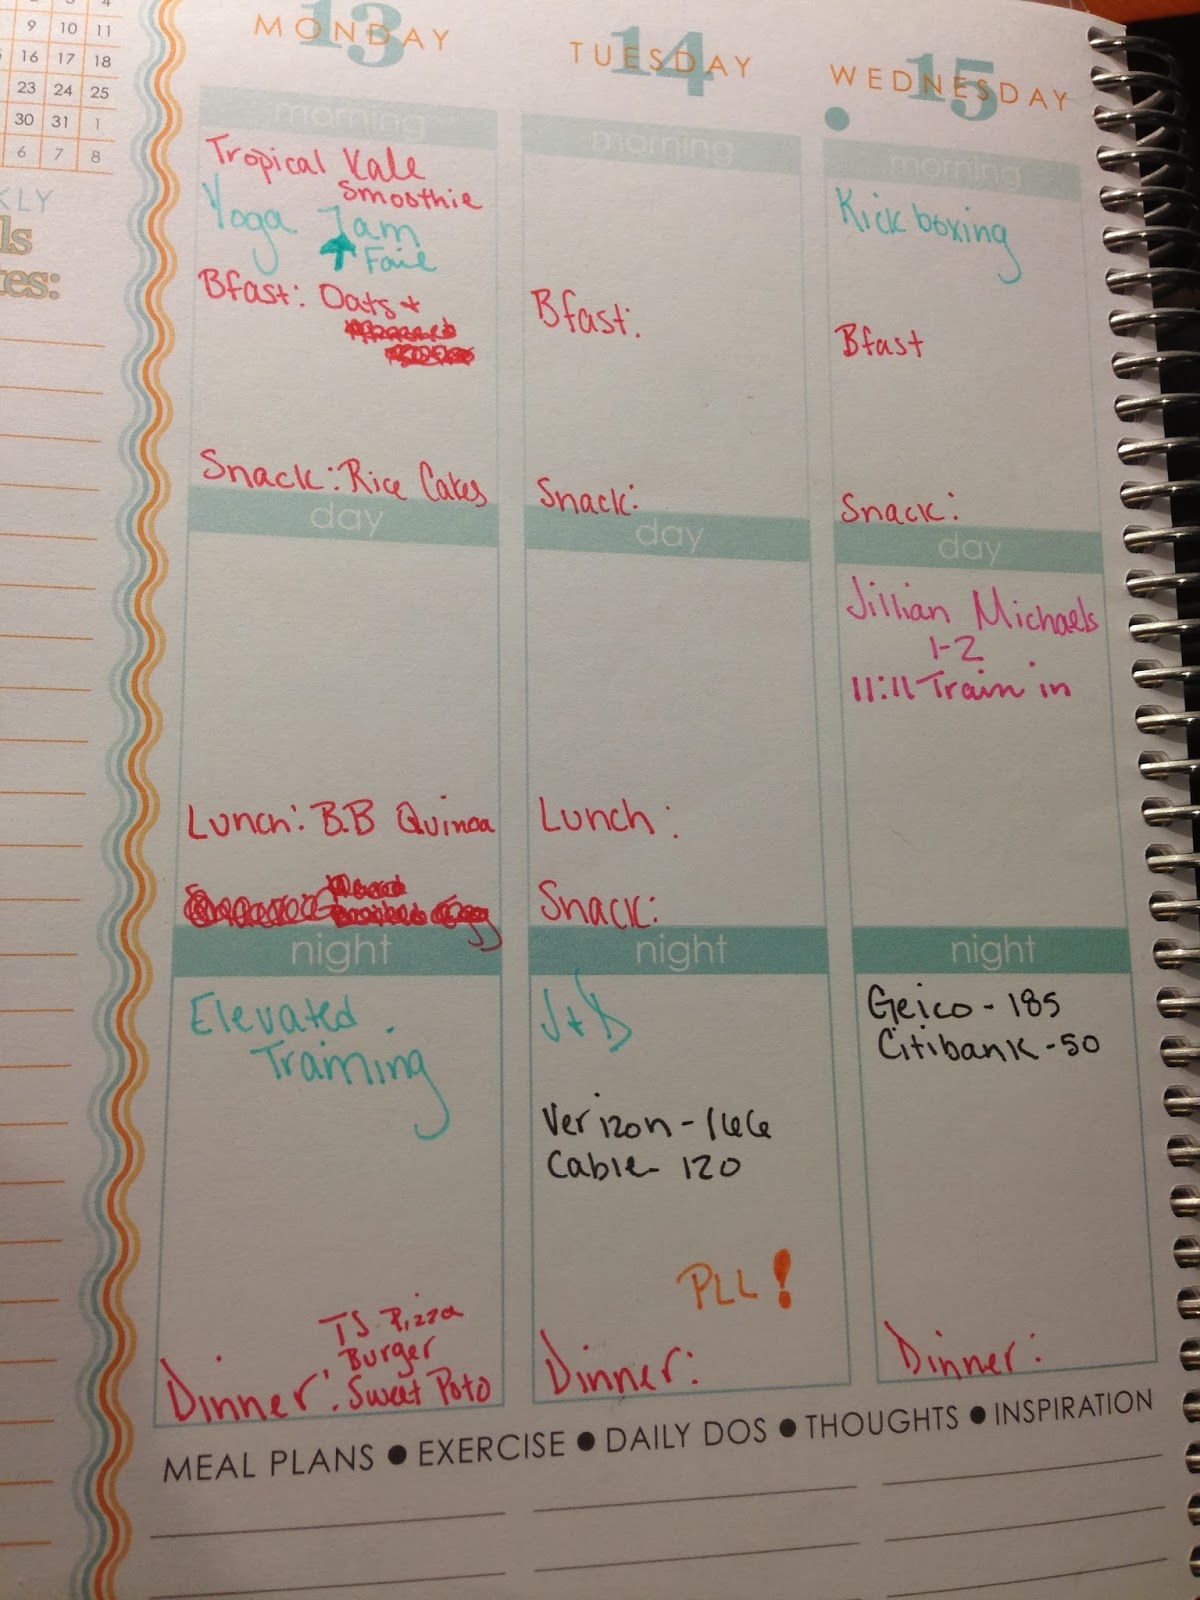 4
9 10 11
16 17 18
23 24 25
30 31 1
6 7 8
KLY
ls
tes:
13
MONDAY
morning
Tropical Kale
Smoothie
Yoga 7am
Fail
Bfast: Oats +
Snack: Rice Cakes
day
Lunch: B.B Quinoa
Egg
night
Elevated
Training
TS. Pizza
Burger
Dinner: Sweet Poto
14
TUESDAY
morning
Bfast:
Snack:
day
Lunch:
Snack:
night
Verizon - 166
Cable - 120
PLL!
Dinner:
15
WEDNESDAY
morning
Kickboxing
Bfast
Snack:
day
Jillian Michaels
1-2
11:11 Train in
night
Geico - 185
Citibank - 50
Dinner:
MEAL PLANS ● EXERCISE ● DAILY DOS ● THOUGHTS ● INSPIRATION